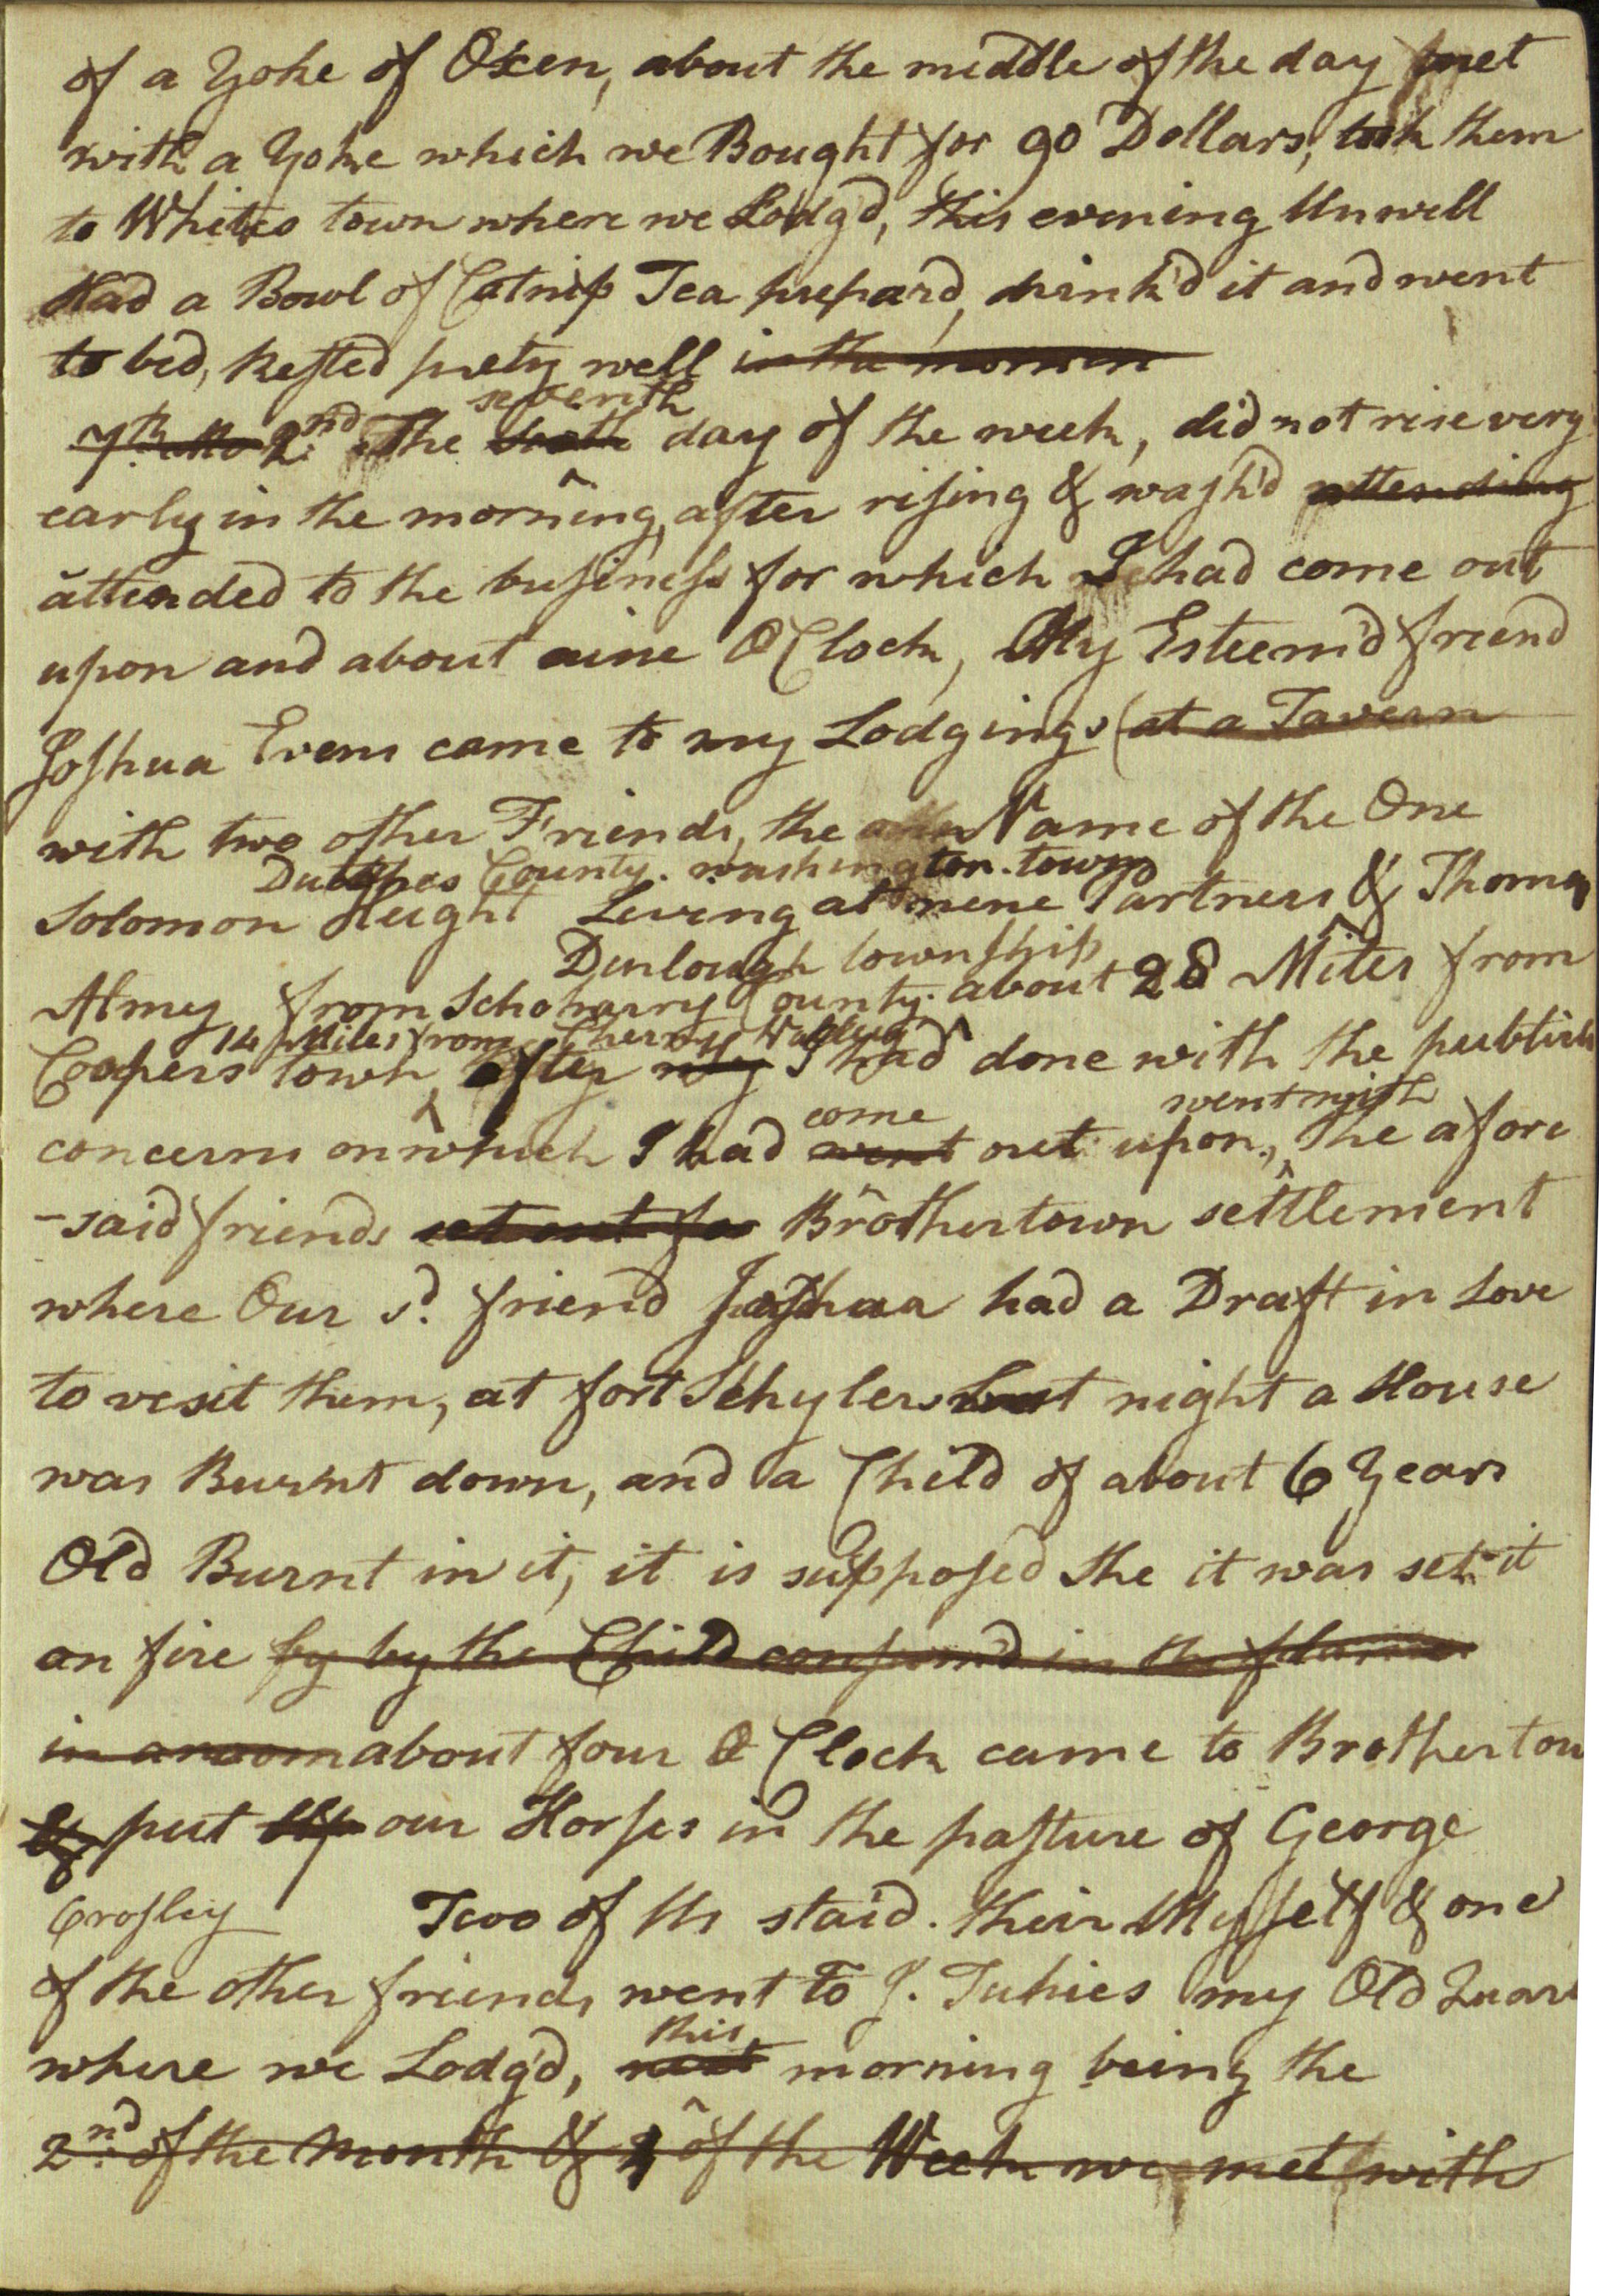 of a Yoke of Oxen, about the middle of the day met
with a Yoke which we Bought for 90 Dollars, took them
to Whites town where we Lodg'd, this evening Unwell
Had a Bowl of Catnip Tea prepard, drink'd it and went
to bed, Rested prety well in the mornin
seventh
7th Mo 2nd. The day of the week, did not rise very
early in the morning, after rising & wash'd attending
attended to the business for which I had come out
upon and about nine OClock, My Esteem'd friend
Joshua Evens came to my Lodgings (at a Tavern
with two other Friends, the Name of the One
Dutches County. washington town
Solomon Height Living at nine Partners & Thomas
Durlough township
Almey from Schoharry County. about 28 Miles from
14 Miles from Cherry Valley
Coopers town, after my I had done with the publick
come went with
concerns on which I had went out upon, the afore
-said friends set out for Brothertown settlement
where Our sd. friend Joshua had a Draft in Love
to vesit them, at fort Schylers Last night a House
was Burnt down, and a Child of about 6 Years
Old Burnt in it, it is supposed the it was set it
an fire by by the Child consum'd in the flames
in a room about four O Clock came to Brothertow
& put Up our Horses in the pasture of George
Crosley Two of Us staid. their My self & one
of the other friends went to J. Tuhies my Old Quar
this
where we Lodg'd, next morning being the
2nd. of the Month & of the Week we met with